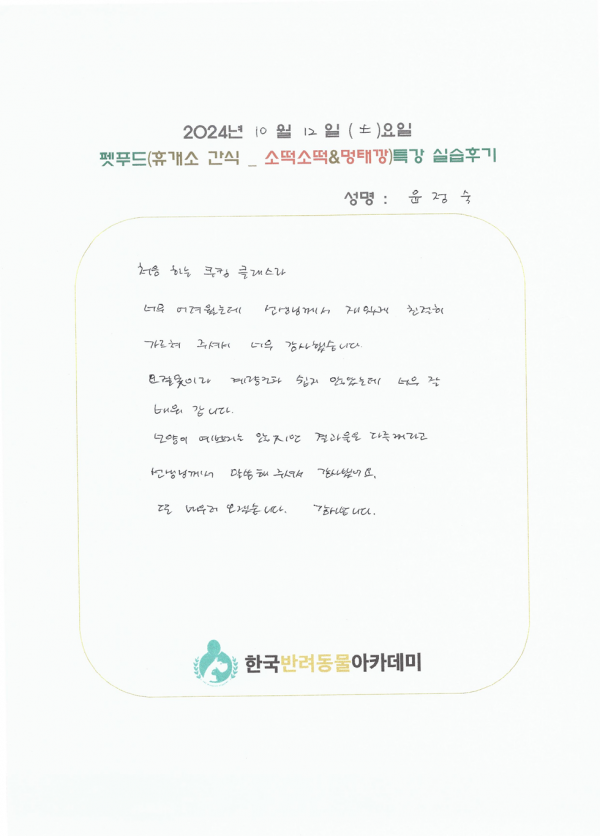 2024년 10 월 12 일 (土)요일
펫푸드(휴게소 간식 _ 소떡소떡&명태깡)특강 실습후기
성명 : 윤정숙
처음 하는 쿠킹 클래스라
너무 어려웠는데 선생님께서 재밌게 친절히
가르쳐 주셔서 너무 감사했습니다
요알못이라 계량조차 쉽지 않았는데 너무 잘
배워 갑니다.
모양이 예쁘지는 않지만 결과물은 다른거라고
선생님께서 말씀해 주셔서 감사합니다.
또 배우러 오겠습니다. 감사합니다.
한국반려동물아카데미